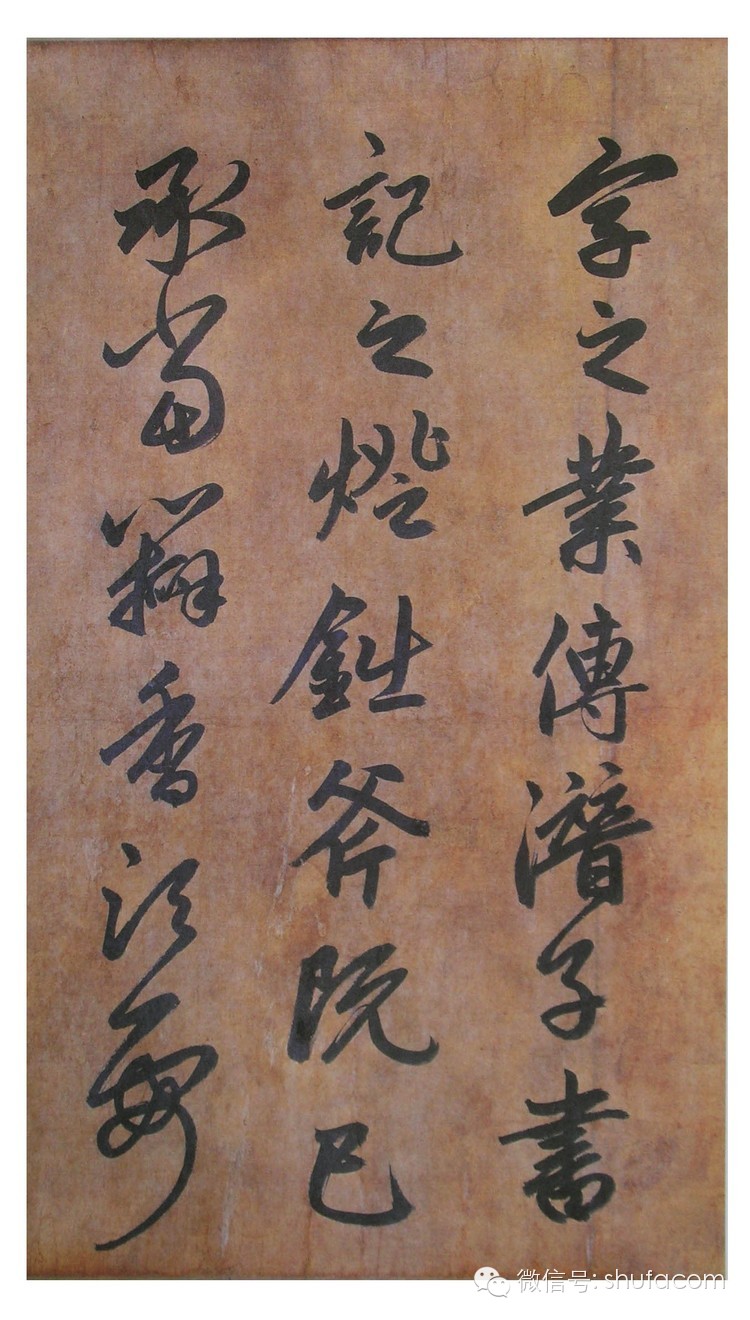 字之業傳潛子書
記之燈鈯斧既已
承當瓣香須要
微信号: shufacom